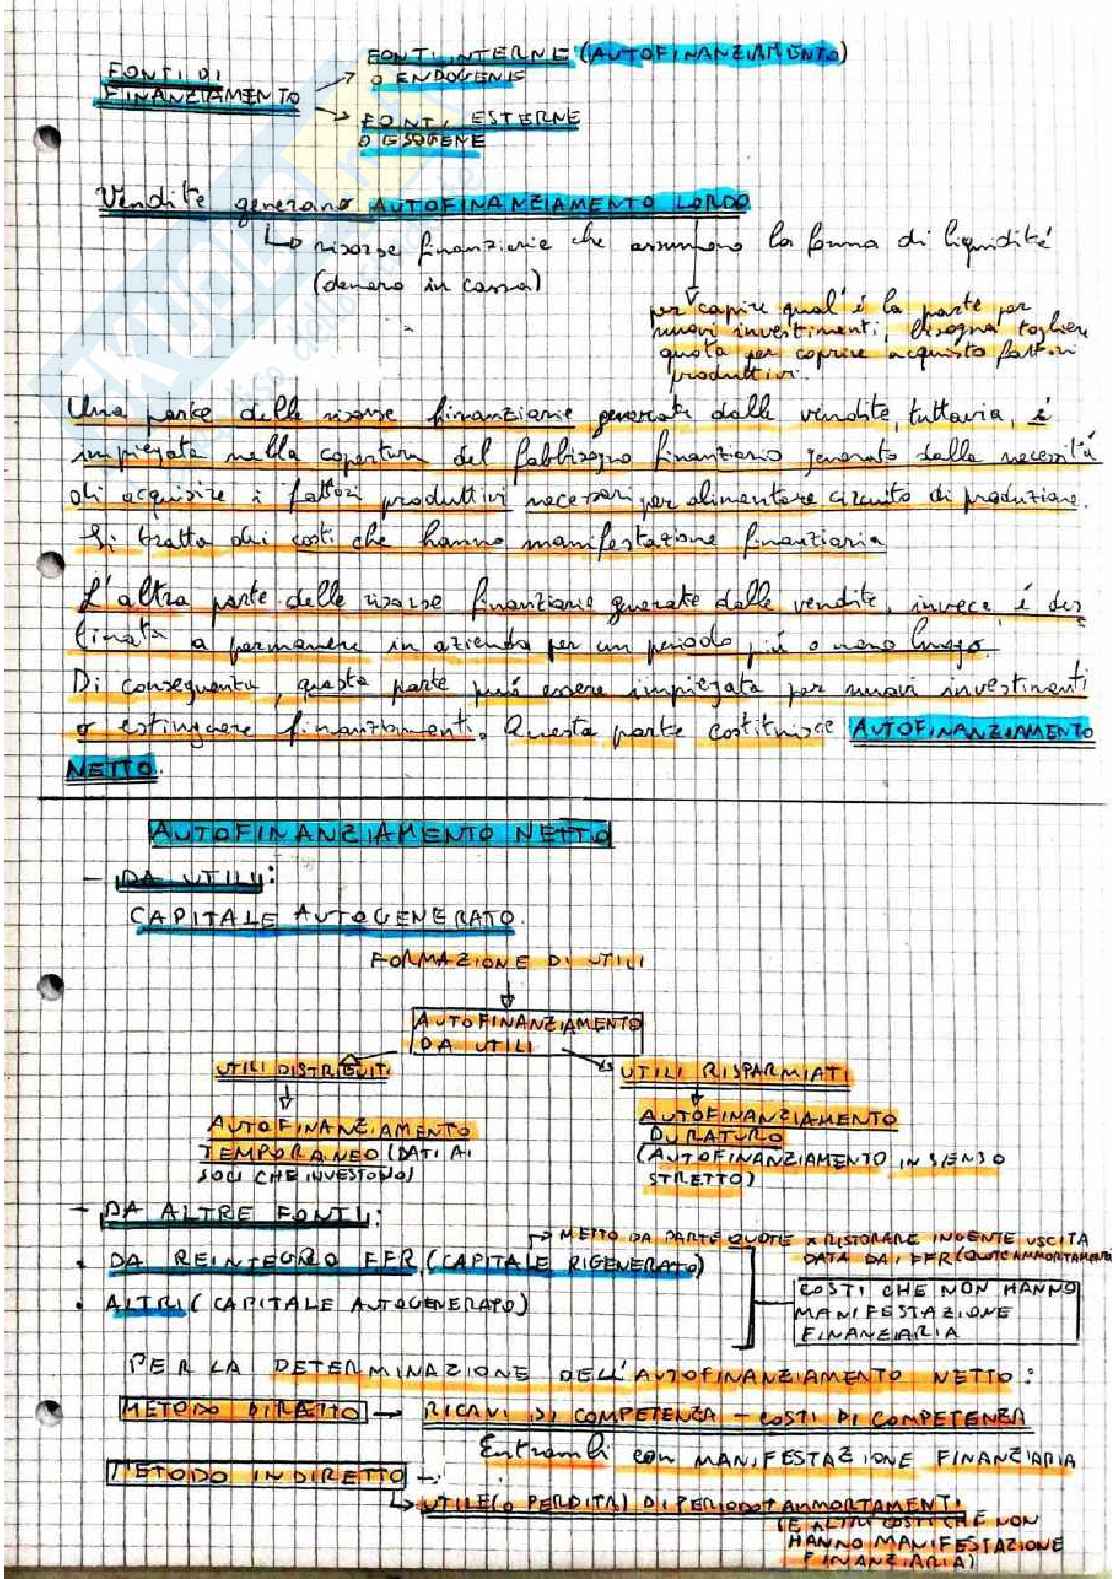 FONTI DI
FINANZIAMENTO
FONTI INTERNE (AUTOFINANZIAMENTO)
O ENDOGENE
FONTI ESTERNE
O ESOGENE
Vendite generano AUTOFINANZIAMENTO LORDO
risorse finanziarie che assumono la forma di liquidità
(denaro in cassa)
per capire qual'è la parte per
nuovi investimenti, bisogna togliere
quota per coprire acquisto fattori
produttivi.
Una parte delle risorse finanziarie generate dalle vendite, tuttavia, è
impiegata nella copertura del fabbisogno finanziario generato dalla necessità
di acquisire i fattori produttivi necessari per alimentare circuito di produzione.
Si tratta dei costi che hanno manifestazione finanziaria
L'altra parte delle risorse finanziarie generate dalle vendite, invece, è des
tinata a permanere in azienda per un periodo più o meno lungo.
Di conseguenza, questa parte può essere impiegata per nuovi investimenti
o estinguere finanziamenti. Questa parte costituisce AUTOFINANZIAMENTO
NETTO.
AUTOFINANZIAMENTO NETTO
- DA UTILI:
CAPITALE AUTOGENERATO.
FORMAZIONE DI UTILI
AUTOFINANZIAMENTO
DA UTILI
UTILI DISTRIBUITI
UTILI RISPARMIATI
AUTOFINANZIAMENTO
TEMPORANEO (DATI AI
SOCI CHE INVESTONO)
AUTOFINANZIAMENTO
DURATURO
(AUTOFINANZIAMENTO IN SENSO
STRETTO)
- DA ALTRE FONTI:
METTO DA PARTE QUOTE X RISTORARE INGENTE USCITA
DATA DAI FFR (QUOTE AMMORTAMENTO
• DA REINTEGRO FFR (CAPITALE RIGENERATO)
• ALTRI (CAPITALE AUTOGENERATO)
COSTI CHE NON HANNO
MANIFESTAZIONE
FINANZIARIA
PER LA DETERMINAZIONE DELL'AUTOFINANZIAMENTO NETTO:
METODO DIRETTO → RICAVI DI COMPETENZA - COSTI DI COMPETENZA
Entrambi con MANIFESTAZIONE FINANZIARIA
METODO INDIRETTO
UTILE (O PERDITA) DI PERIODO + AMMORTAMENTI
(E ALTRI COSTI CHE NON
HANNO MANIFESTAZIONE
FINANZIARIA)